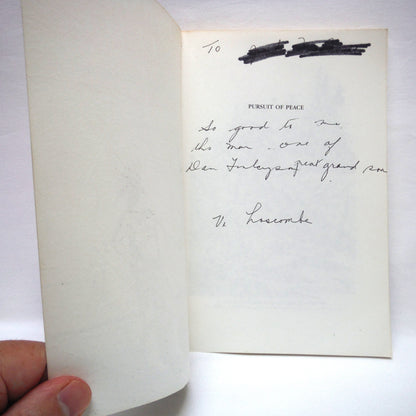 To
PURSUIT OF PEACE
So good to me
this man. one of
Dan great grand son
V. Loscombe